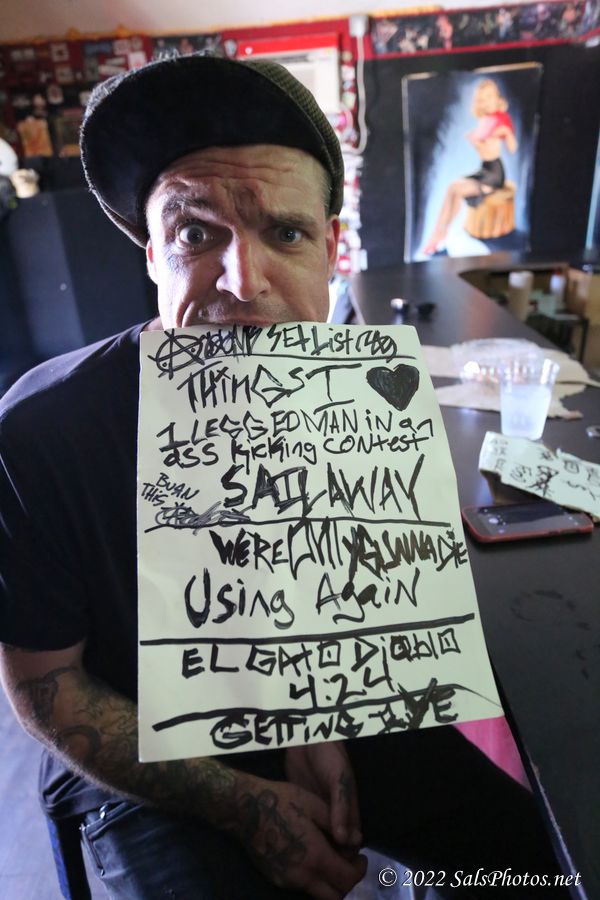 SET LIST
THINGS I ♥
1 LEGGED MAN IN an
ass KicKing CONTEST
BURN
THIS
SAIL AWAY
WERE ONLY GUNNA DIE
Using Again
EL GATO DiablO
4:24
GETTING
© 2022 SalsPhotos.net